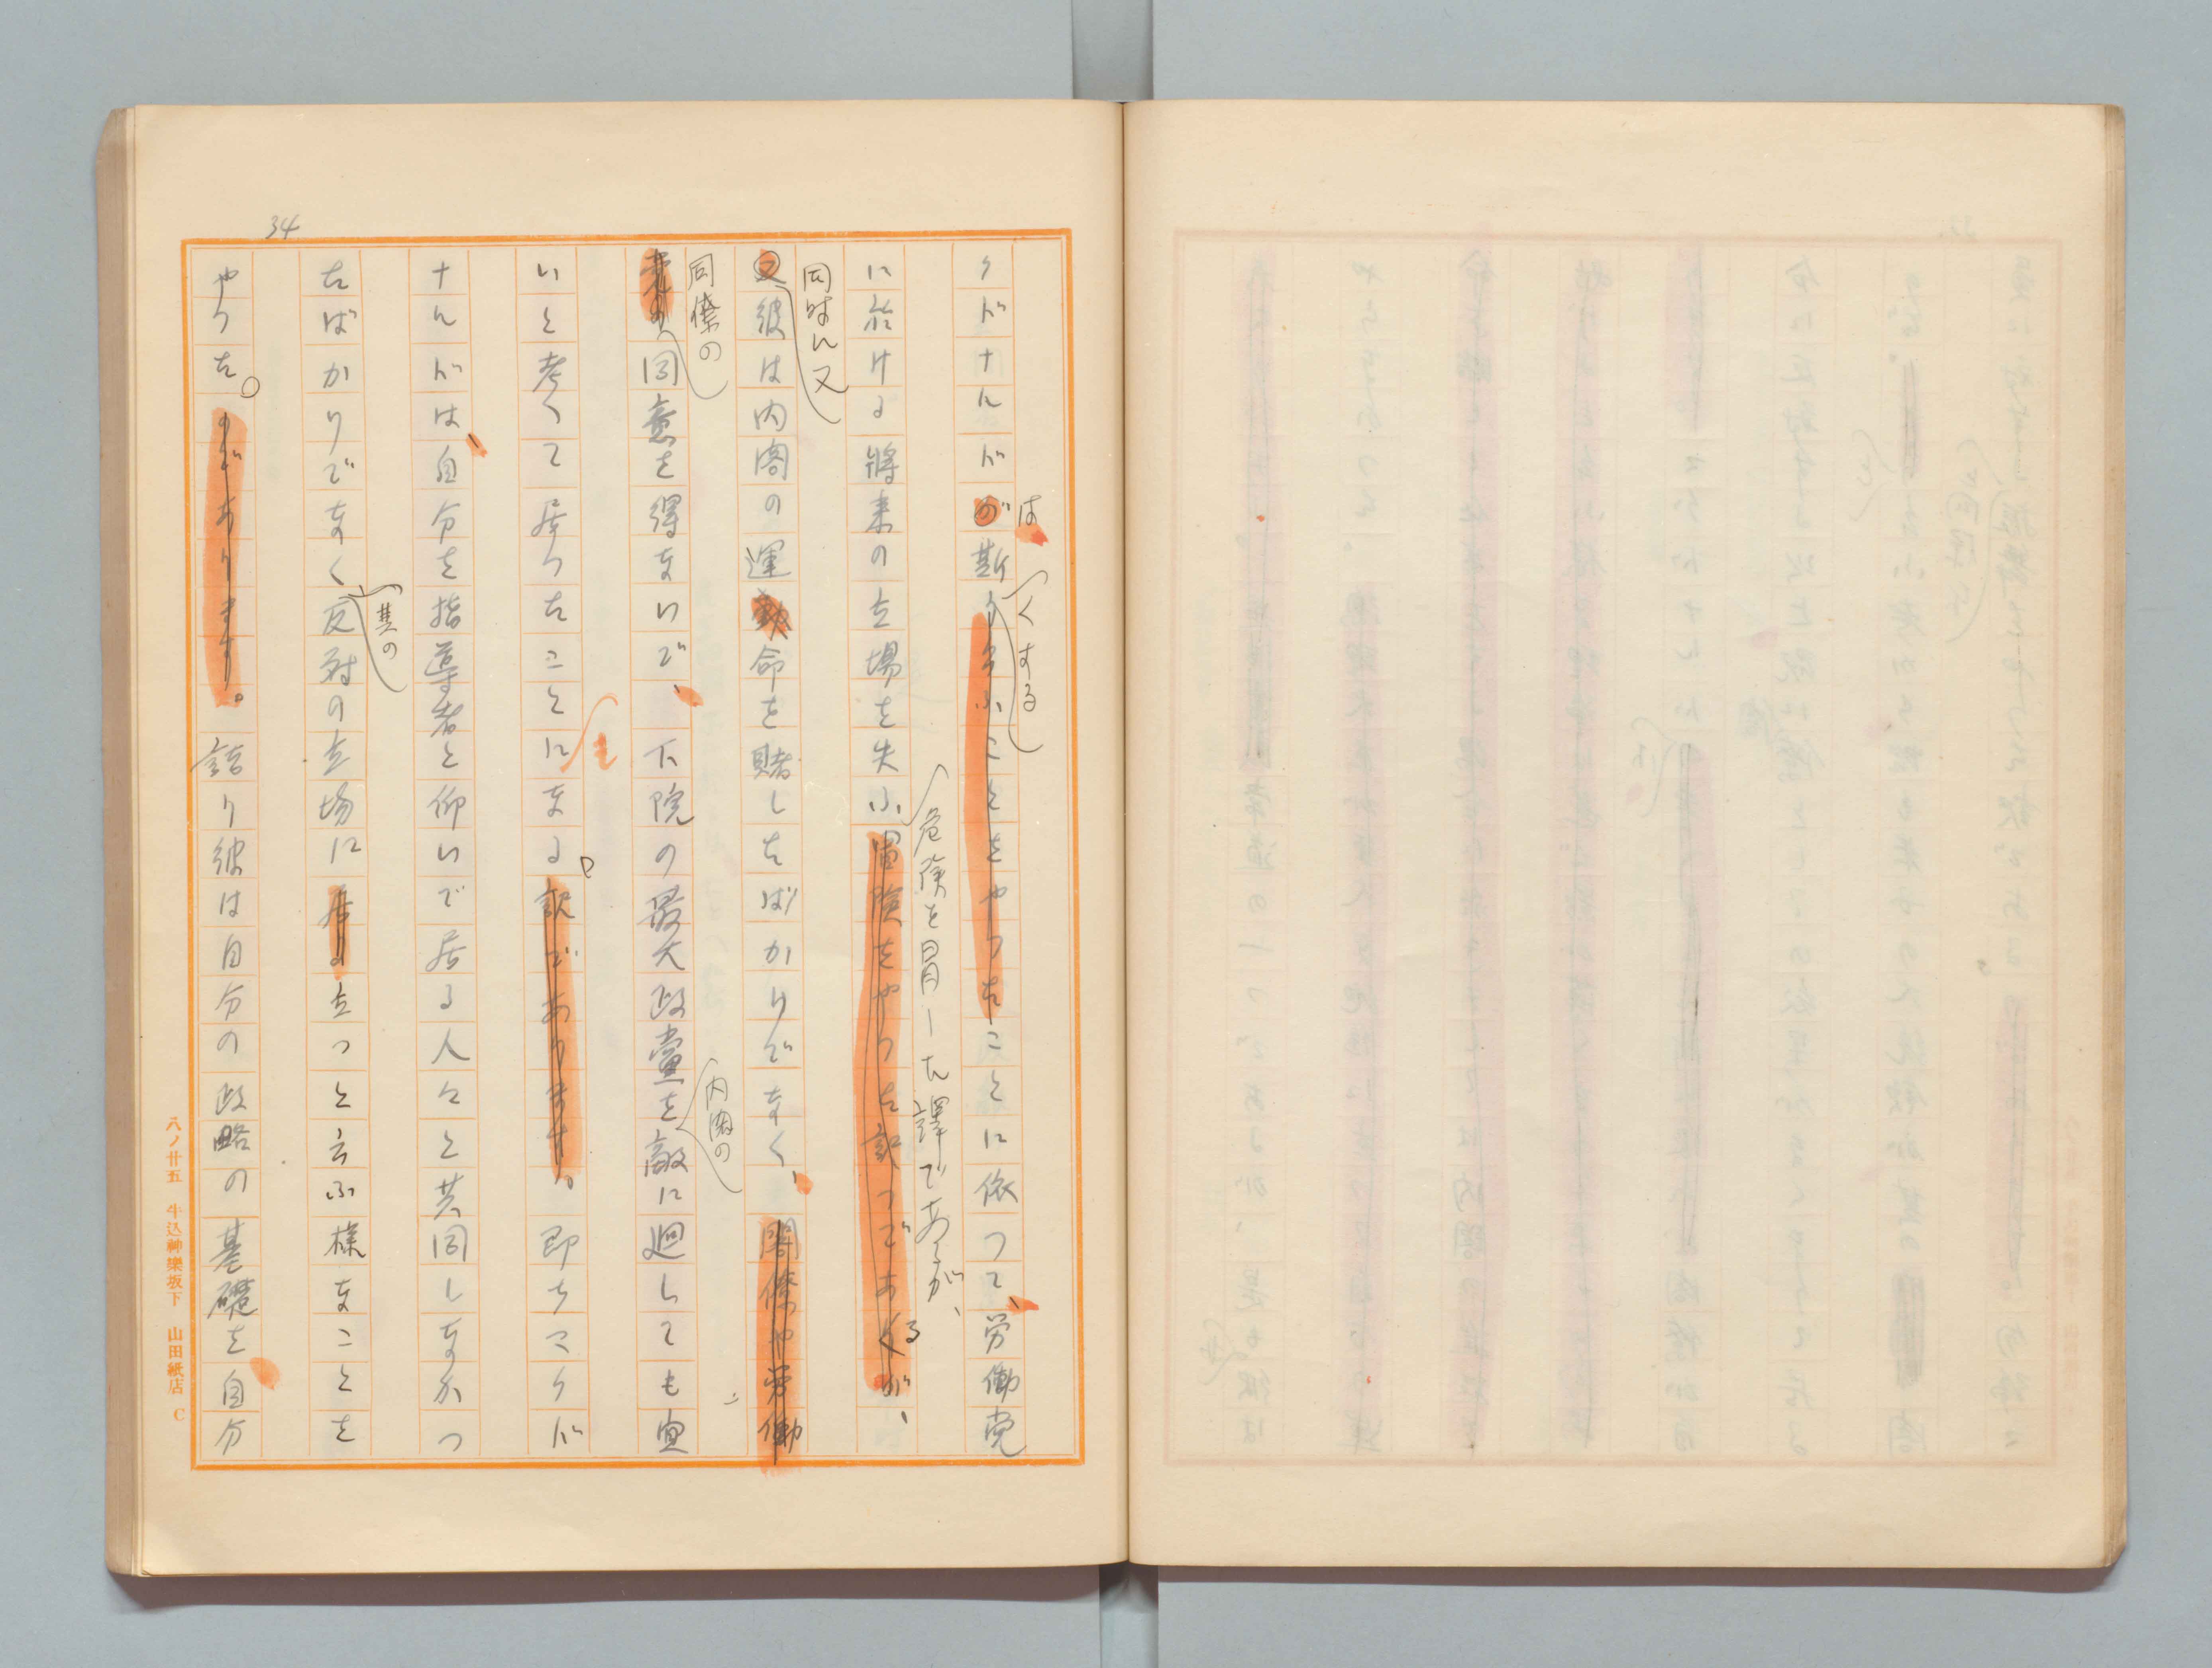 34
クドナルドが斯う云ふことをやつたことに依つて、労働党
は
くする
に於ける将来の立場を失ふ冒険をやつた訳であるが、
危険を冒した譯であるが、
又彼は内閣の運動命を賭したばかりでなく、閣僚や労働
同時に又
党の同意を得ないで、下院の最大政黨を敵に廻しても宜
同僚の
内閣の
いと考へて居つたことになる。訳であります。即ちマクド
も
ナルドは、自分を指導者と仰いで居る人々と共同しなかつ
たばかりでなく反対の立場に居る立つと云ふ様なことを
其の
やつた。のであります。詰り彼は自分の政略の基礎を自分
八ノ廿五 牛込神樂坂下 山田紙店 C